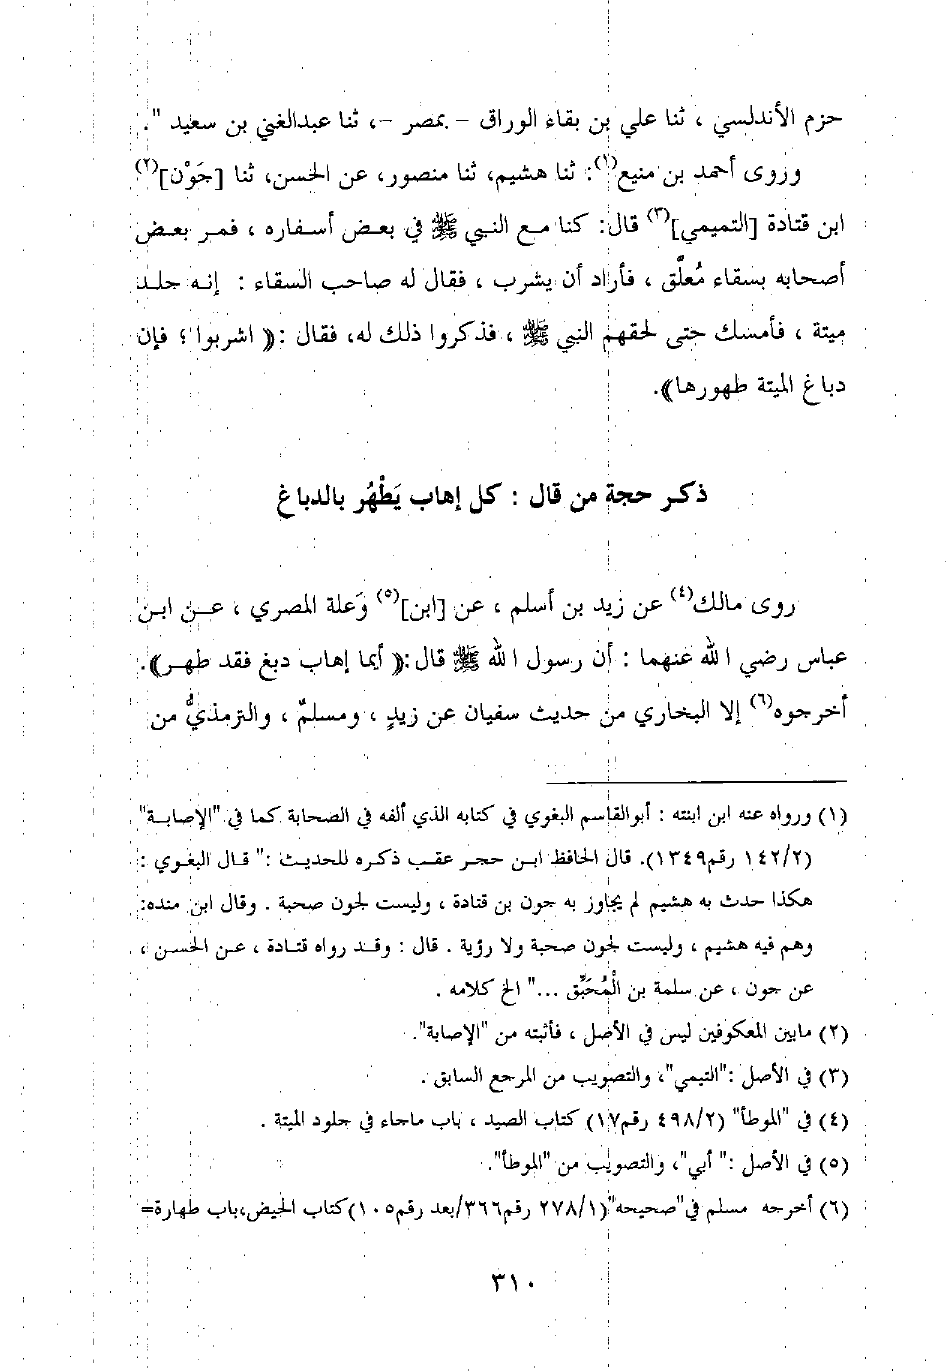 حزم الأندلسي ، ثنا علي بن بقاء الوراق – بمصر –، ثنا عبدالغني بن سعيد ".
وروى أحمد بن منيع(١): ثنا هشيم، ثنا منصور، عن الحسن، ثنا [جَوْن](٢)
ابن قتادة [التميمي](٣) قال: كنا مع النبي ﷺ في بعض أسفاره ، فمر بعض
أصحابه بسقاء مُعلَّق ، فأراد أن يشرب ، فقال له صاحب السقاء : إنه جلد
ميتة ، فأمسك حتى لحقهم النبي ﷺ ، فذكروا ذلك له، فقال :﴿ اشربوا ؛ فإن
دباغ الميتة طهورها﴾.
ذكر حجة من قال : كل إهاب يَطْهُر بالدباغ
روى مالك(٤) عن زيد بن أسلم ، عن [ابن](٥) وَعلة المصري ، عن ابن
عباس رضي الله عنهما : أن رسول الله ﷺ قال :﴿ أيما إهاب دبغ فقد طهر﴾.
أخرجوه(٦) إلا البخاري من حديث سفيان عن زيدٍ ، ومسلمٌ ، والترمذيُّ من
(١) ورواه عنه ابن ابنته : أبوالقاسم البغوي في كتابه الذي ألفه في الصحابة كما في "الإصابة"
(١٤٢/٢ رقم١٣٤٩). قال الحافظ ابن حجر عقب ذكره للحديث :" قال البغوي :
هكذا حدث به هشيم لم يجاوز به جون بن قتادة ، وليست لجون صحبة . وقال ابن منده:
وهم فيه هشيم ، وليست لجون صحبة ولا رؤية . قال : وقد رواه قتادة ، عن الحسن ،
عن جون ، عن سلمة بن الْمُحَبِّق ..." الخ كلامه .
(٢) مابين المعكوفين ليس في الأصل ، فأثبته من "الإصابة".
(٣) في الأصل :"التيمي"، والتصويب من المرجع السابق .
(٤) في "الموطأ" (٤٩٨/٢ رقم١٧) كتاب الصيد ، باب ماجاء في جلود الميتة .
(٥) في الأصل :" أبي"، والتصويب من "الموطأ".
(٦) أخرجه مسلم في"صحيحه"(٢٧٨/١ رقم٣٦٦/بعد رقم١٠٥)كتاب الحيض،باب طهارة=
٣١٠